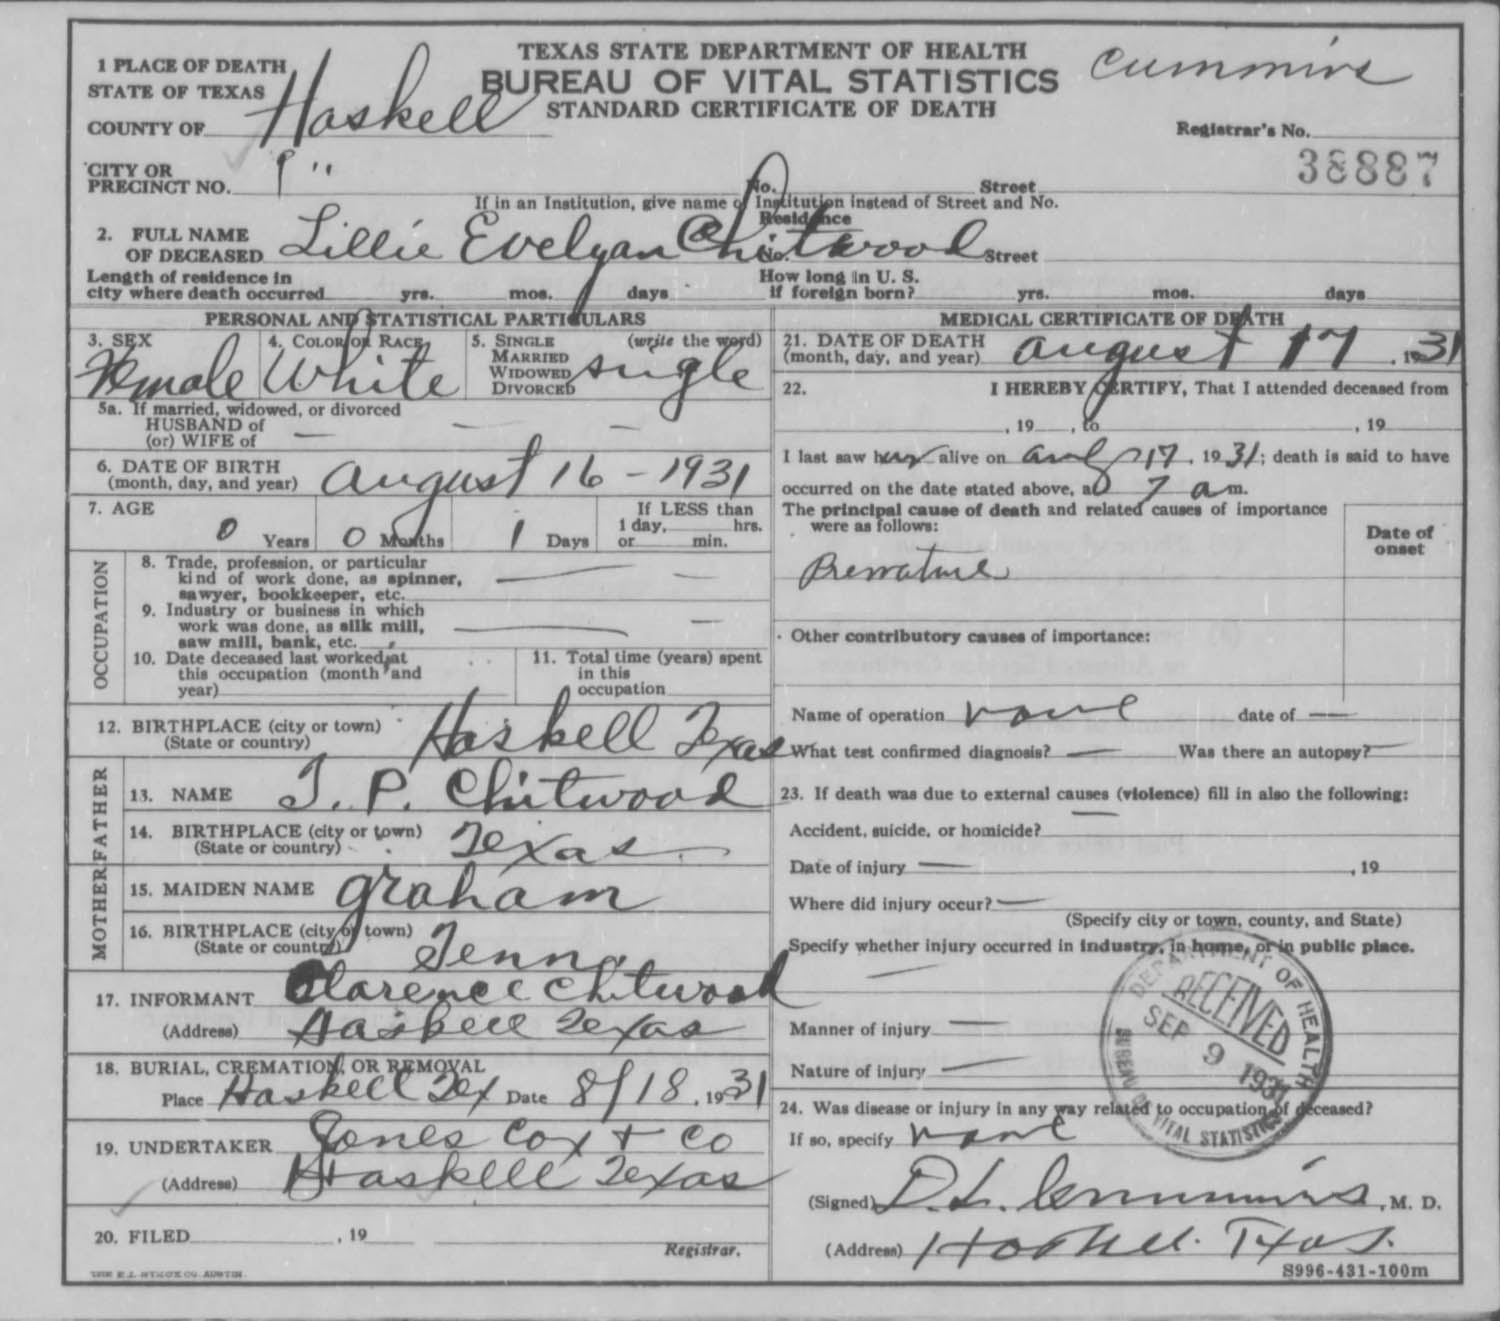 TEXAS STATE DEPARTMENT OF HEALTH
BUREAU OF VITAL STATISTICS
STANDARD CERTIFICATE OF DEATH
Cummins
1 PLACE OF DEATH
STATE OF TEXAS
COUNTY OF Haskell
Registrar's No.
38887
CITY OR
PRECINCT NO. " No. Street
If in an Institution, give name of Institution instead of Street and No.
2. FULL NAME
OF DECEASED Lillie Evelyan Chitwood Residence No. Street
Length of residence in
city where death occurred yrs. mos. days
How long in U. S.
if foreign born? yrs. mos. days
PERSONAL AND STATISTICAL PARTICULARS
3. SEX Female
4. COLOR OR RACE White
5. SINGLE MARRIED WIDOWED DIVORCED (write the word) single
5a. If married, widowed, or divorced
HUSBAND of
(or) WIFE of — — —
6. DATE OF BIRTH
(month, day, and year) August 16 - 1931
7. AGE
0 Years 0 Months 1 Days
If LESS than
1 day, hrs.
or min.
OCCUPATION
8. Trade, profession, or particular
kind of work done, as spinner,
sawyer, bookkeeper, etc. — —
9. Industry or business in which
work was done, as silk mill,
saw mill, bank, etc. — —
10. Date deceased last worked at
this occupation (month and
year)
11. Total time (years) spent
in this
occupation
12. BIRTHPLACE (city or town)
(State or country) Haskell Texas
FATHER
13. NAME T. P. Chitwood
14. BIRTHPLACE (city or town)
(State or country) Texas
MOTHER
15. MAIDEN NAME Graham
16. BIRTHPLACE (city or town)
(State or country) Tenn.
17. INFORMANT Clarence Chitwood
(Address) Haskell Texas
18. BURIAL, CREMATION, OR REMOVAL
Place Haskell Tex Date 8/18, 1931
19. UNDERTAKER Jones Cox + Co
(Address) Haskell Texas
20. FILED , 19
Registrar.
THE E.L. STECK CO. AUSTIN.
MEDICAL CERTIFICATE OF DEATH
21. DATE OF DEATH
(month, day, and year) August 17, 1931
22. I HEREBY CERTIFY, That I attended deceased from
, 19 , to , 19
I last saw her alive on Aug 17, 1931; death is said to have
occurred on the date stated above, at 7 a m.
The principal cause of death and related causes of importance
were as follows:
Date of
onset
Premature
Other contributory causes of importance:
Name of operation none date of —
What test confirmed diagnosis? — Was there an autopsy? —
23. If death was due to external causes (violence) fill in also the following:
Accident, suicide, or homicide? —
Date of injury — , 19
Where did injury occur? —
(Specify city or town, county, and State)
Specify whether injury occurred in industry, in home, or in public place.
—
Manner of injury —
Nature of injury —
DEPARTMENT OF HEALTH
RECEIVED
SEP 9 1931
BUREAU OF VITAL STATISTICS
24. Was disease or injury in any way related to occupation of deceased?
If so, specify none
(Signed) D. L. Cummins, M. D.
(Address) Haskell. Texas.
S996-431-100m